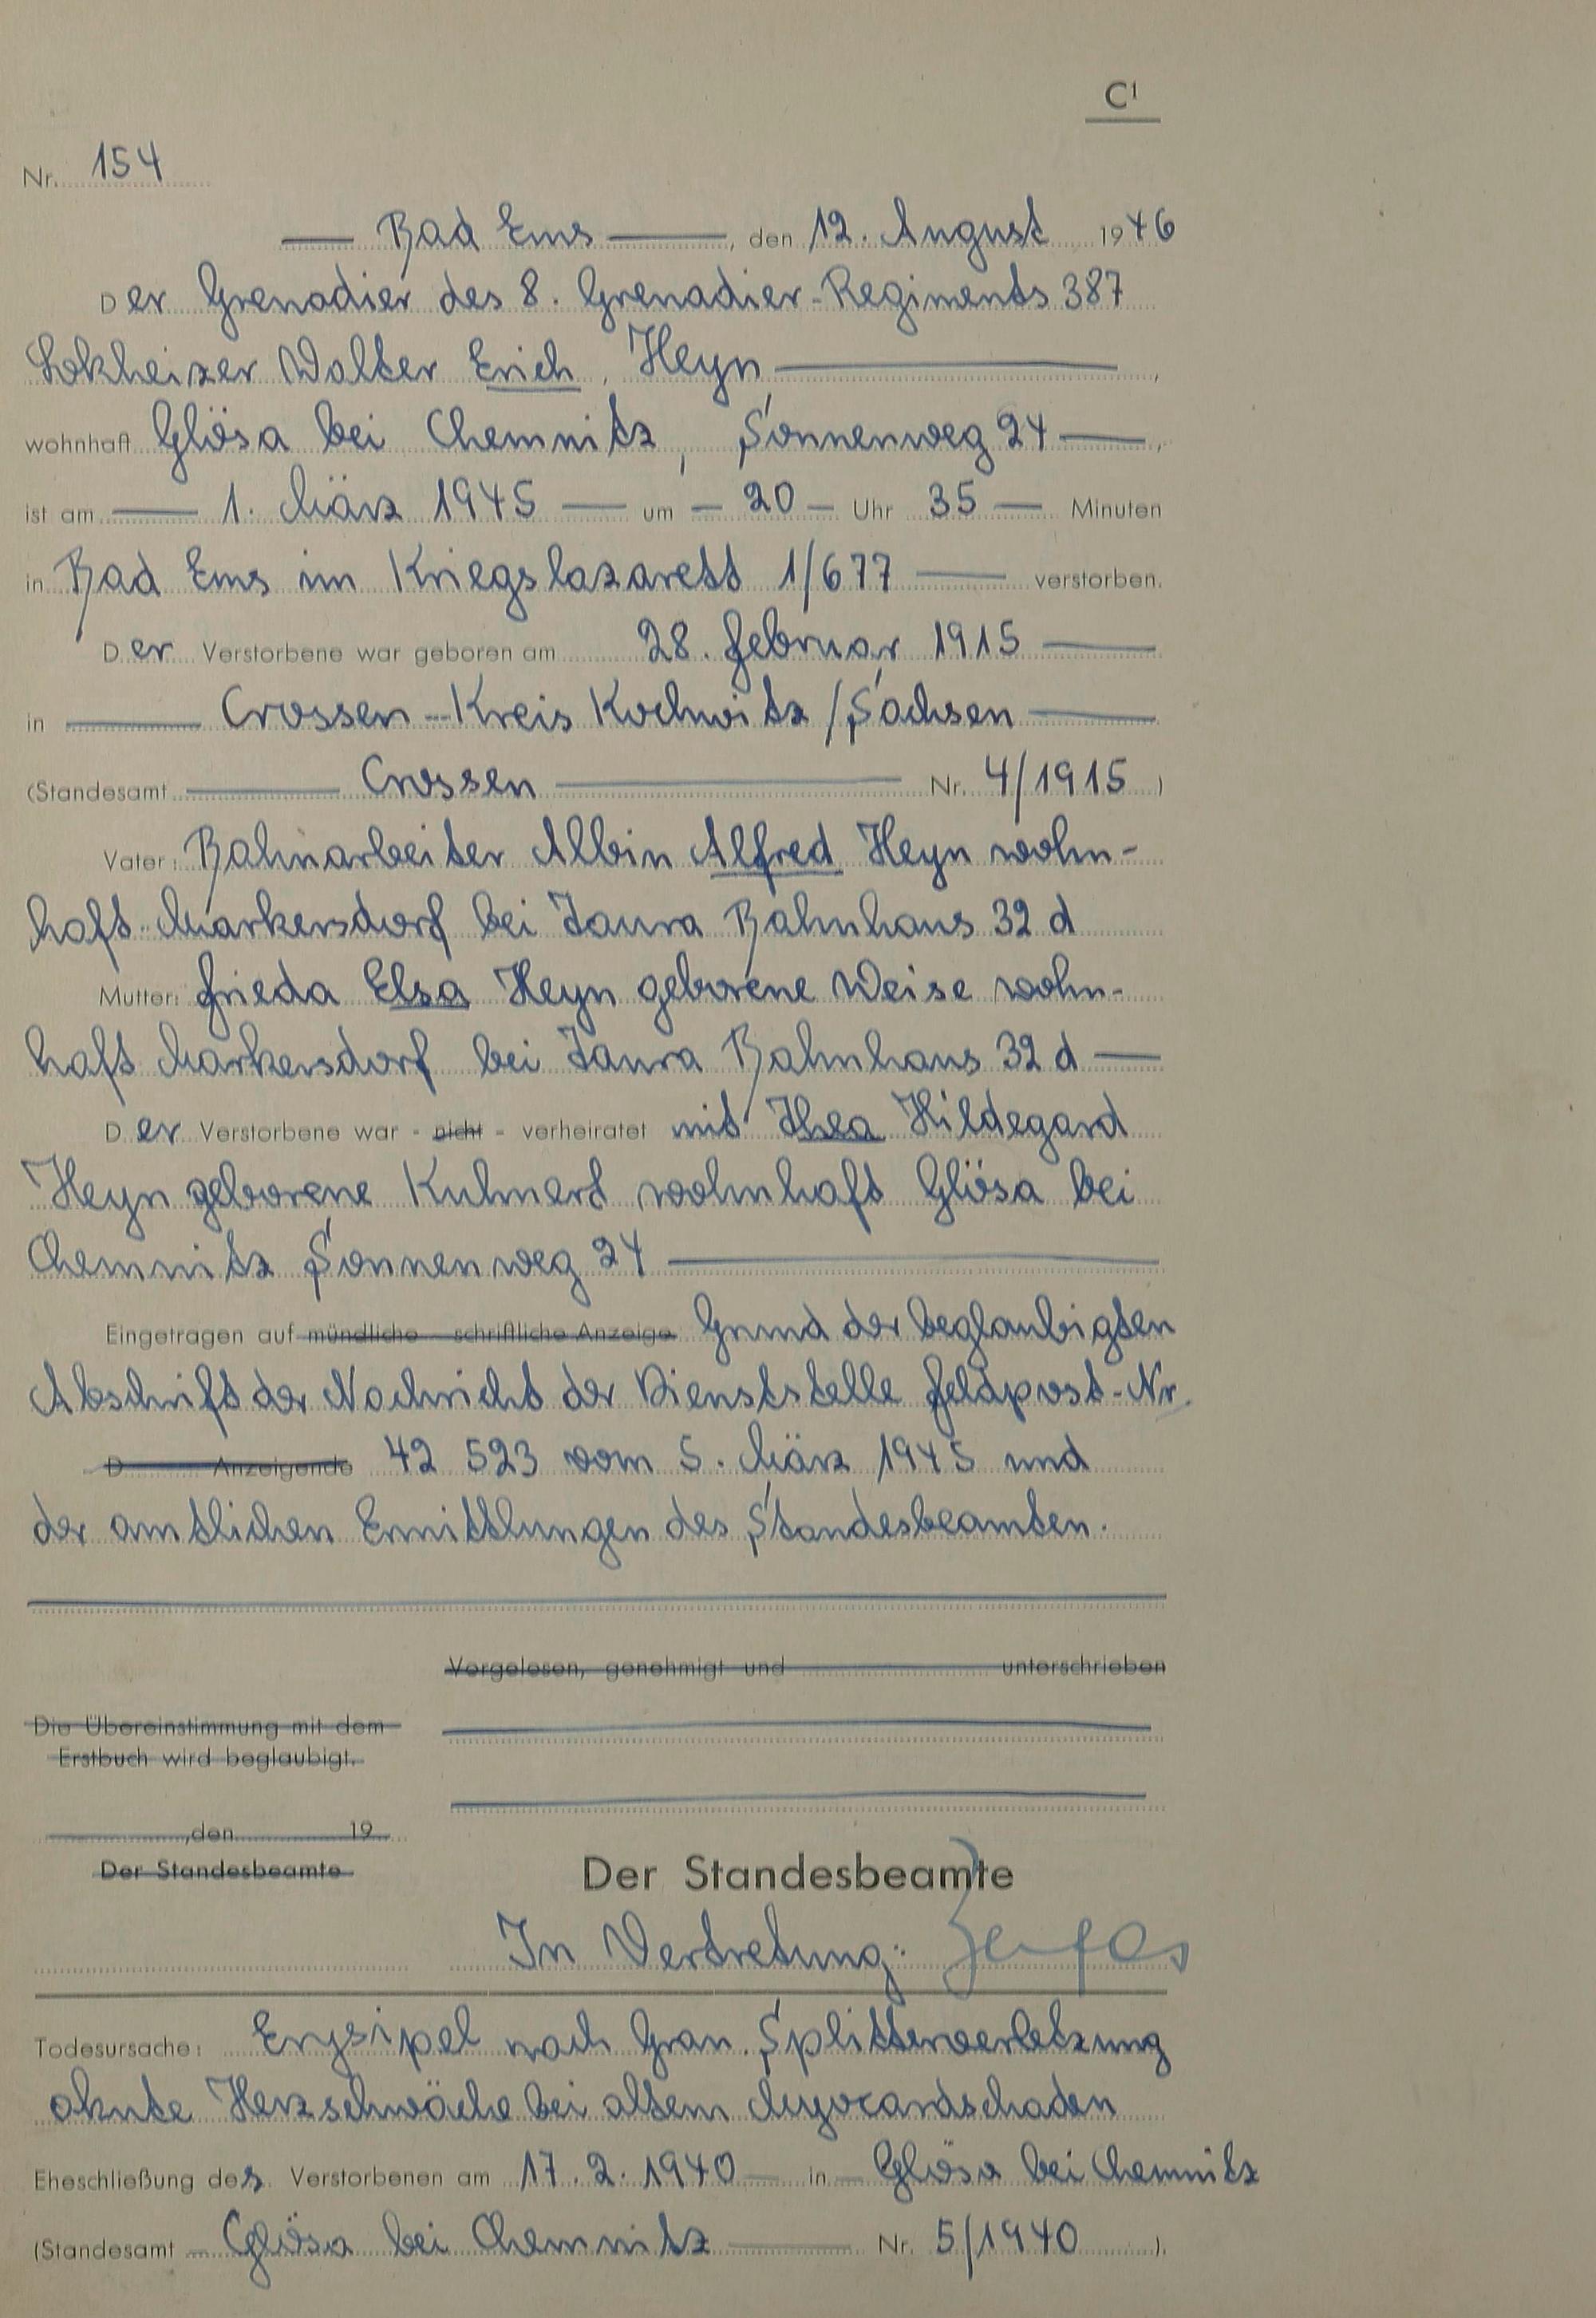 C¹
Nr. 154
— Bad Ems —, den 12. August 1946
Der Grenadier des 8. Grenadier-Regiments 387
Lokheizer Walter Erich, Heyn —,
wohnhaft Glösa bei Chemnitz, Sonnenweg 24 —,
ist am — 1. März 1945 — um — 20 — Uhr 35 — Minuten
in Bad Ems im Kriegslazarett 1/677 — verstorben.
Der Verstorbene war geboren am 28. Februar 1915 —
in — Crossen - Kreis Rochwitz / Sachsen —
(Standesamt — Crossen — Nr. 4/1915)
Vater: Bahnarbeiter Albin Alfred Heyn wohn-
haft Markersdorf bei Taura Bahnhaus 32 d
Mutter: Frieda Elsa Heyn geborene Weise wohn-
haft Markersdorf bei Taura Bahnhaus 32 d —
Der Verstorbene war - nicht - verheiratet mit Thea Hildegard
Heyn geborene Kuhnert wohnhaft Glösa bei
Chemnitz Sonnenweg 24 —
Eingetragen auf mündliche schriftliche Anzeige Grund der beglaubigten
Abschrift der Nachricht der Dienststelle Feldpost-Nr.
D Anzeigende 42 523 vom 5. März 1945 und
der amtlichen Ermittlungen des Standesbeamten.
Vorgelesen, genehmigt und unterschrieben
Die Übereinstimmung mit dem
Erstbuch wird beglaubigt.
, den 19
Der Standesbeamte
Der Standesbeamte
In Vertretung:
Todesursache: Erysipel nach Gran. Splitterverletzung
akute Herzschwäche bei altem Myocardschaden
Eheschließung des Verstorbenen am 17.2.1940 — in — Glösa bei Chemnitz
(Standesamt — Glösa bei Chemnitz — Nr. 5/1940).